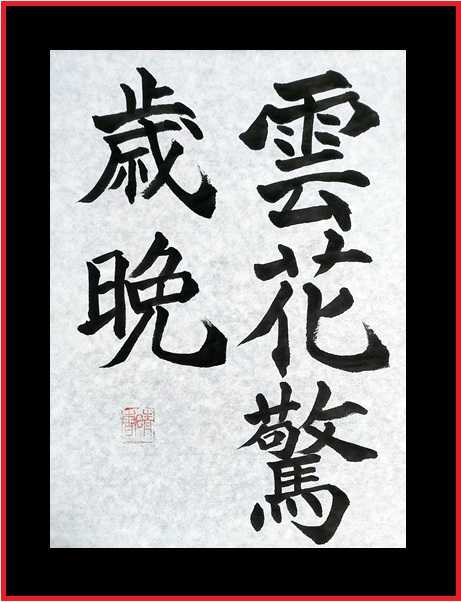 雲花驚
歳晩